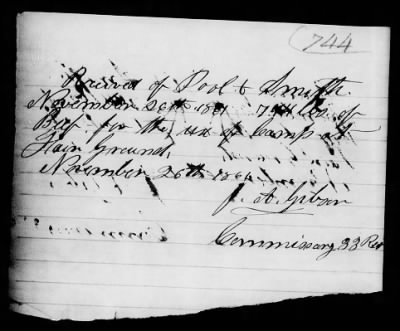 744
Received of Pool & Smith
November 26th 1861 744 lbs of
Beef for the use of Camp at
Fair Ground,
November 26th 1861
J. A. Gibson
Commissary 33 Reg